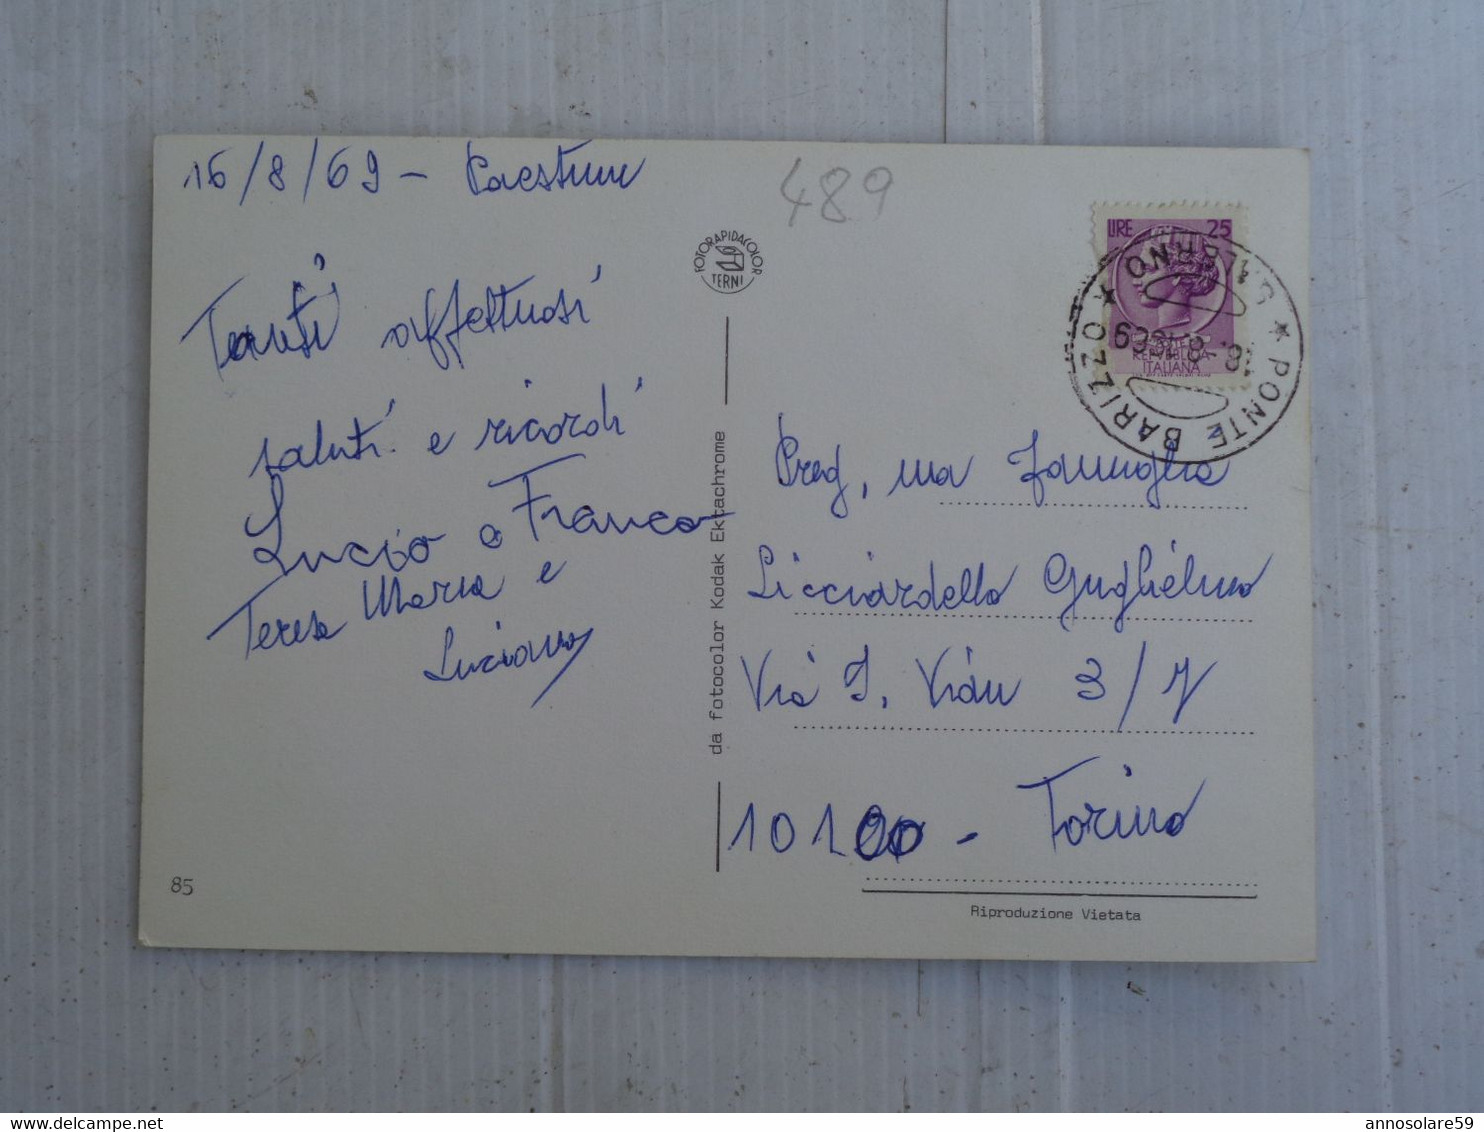 16/8/69 - Paestum
489
Tanti affettuosi
saluti e ricordi
Lucio e Franca
Teresa Maria e
Luciano
85
FOTORAPIDACOLOR
TERNI
da fotocolor Kodak Ektachrome
LIRE 25
REPUBBLICA
ITALIANA
* PONTE BARIZZO *
SALERNO
18.8.1969
Preg.ma Famiglia
Licciardello Guglielmo
Via S. Vidu 3/7
10100 - Torino
Riproduzione Vietata
annosolare59